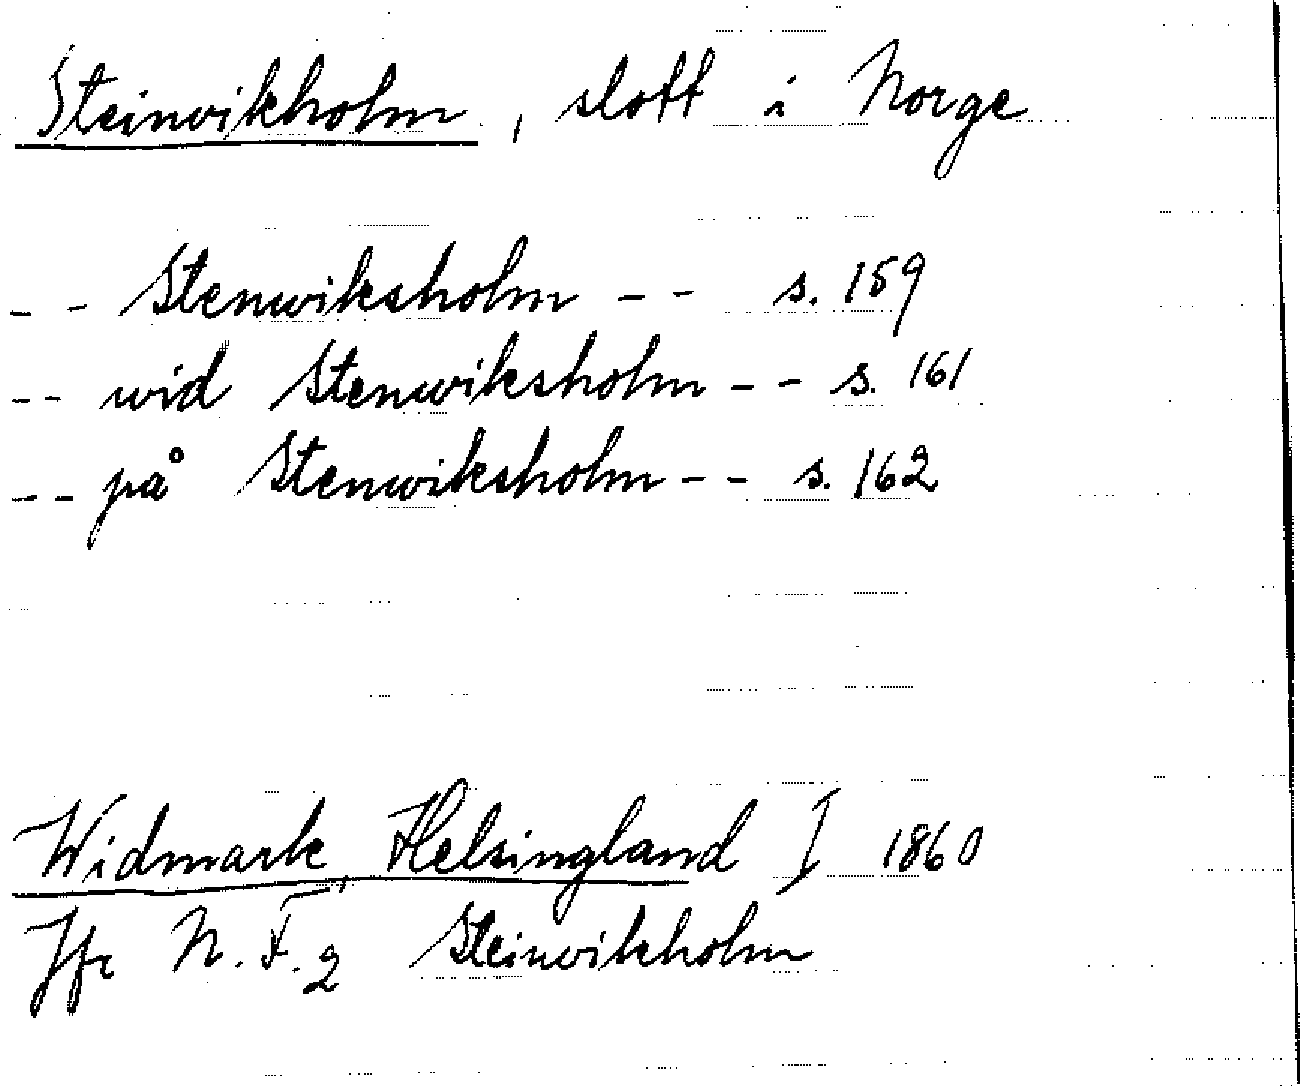 Steinvikholm, slott i Norge
-- Stenwiksholm -- s. 159
-- wid Stenwiksholm -- s. 161
-- på Stenwiksholm -- s. 162
Widmark, Helsingland I 1860
Jfr N.F.2 Steinvikholm